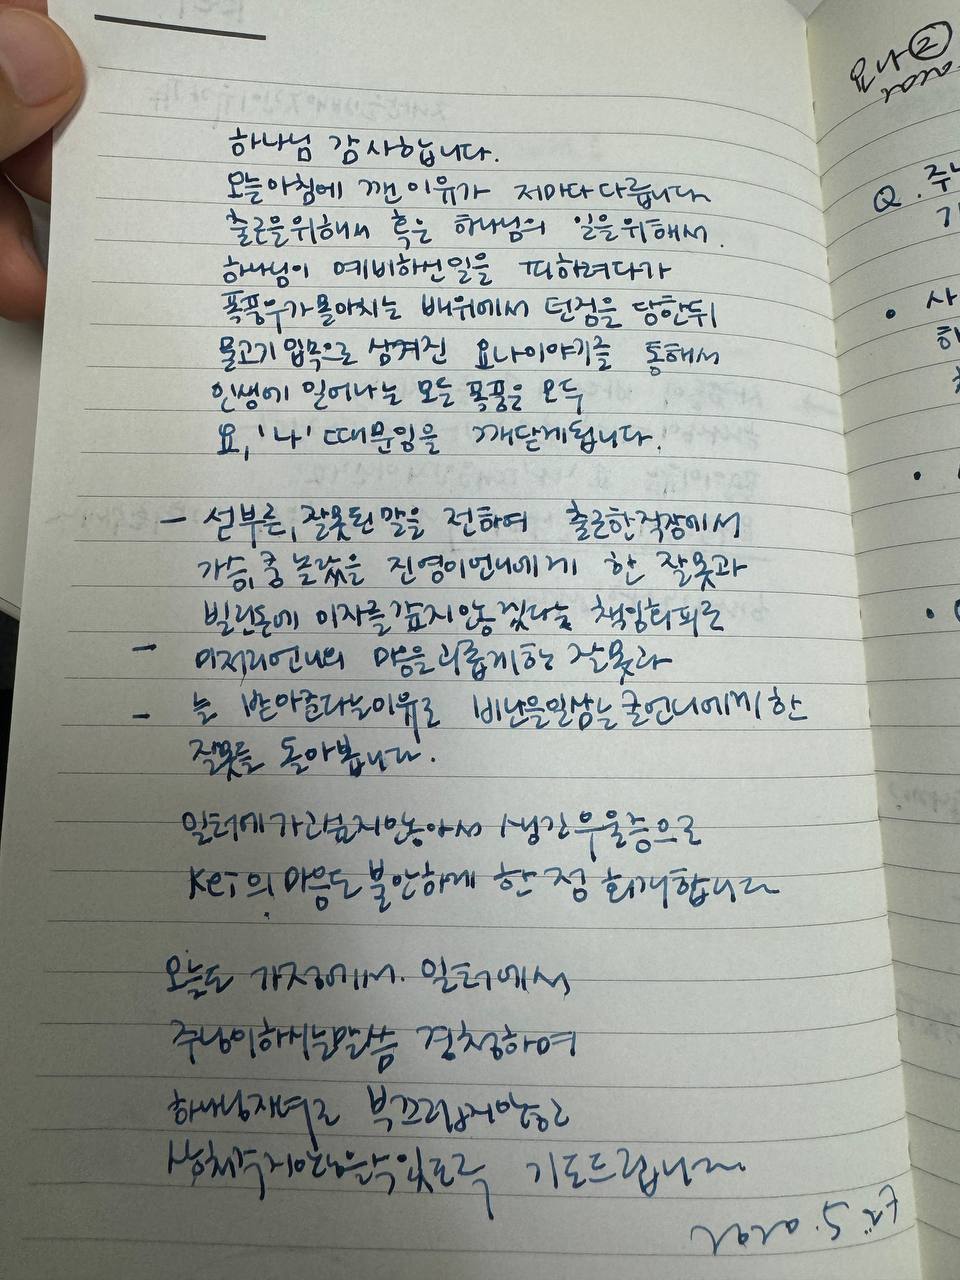 하나님 감사합니다.
오늘아침에 깬 이유가 저마다 다릅니다
출근을위해서 혹은 하나님의 일을위해서.
하나님이 예비하선일을 피하려다가
폭풍우가몰아치는 배위에서 던짐을 당한뒤
물고기 입목으로 삼켜진 요나이야기를 통해서
인생에 일어나는 모든 폭풍은 모두
요, '나' 때문임을 깨닫게됩니다.
- 섣부른, 잘못된 말을 전하여 출근한직장에서
가슴, 쿵 놀랐을 진영이언니에게 한 잘못과
빌린돈에 이자를 갚지않종겠다는 책임회피로
- 언니의 마음을괴롭게한 잘못과
- 늘 받아준다는이유로 비난을일삼는 언니에게한
잘못들 돌아봅니다.
일터에가고싶지않아서 생긴우울증으로
의 마음도 불안하게 한 점 회개합니다
오늘도 가정에서. 일터에서
주님이하시는말씀 경청하여
하나님자녀로 부끄럽지않고
기도드립니다
요나②
Q. 주
기
• 사
해